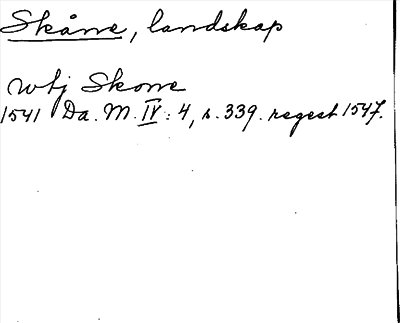 Skåne, landskap
wtj Skone
1541 Da. M. IV: 4, s. 339. regest 1547.